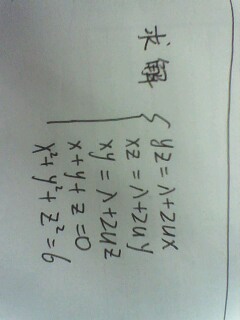 求解
{ yz = λ+2ux
xz = λ+2uy
xy = λ+2uz
x+y+z=0
x²+y²+z²=6